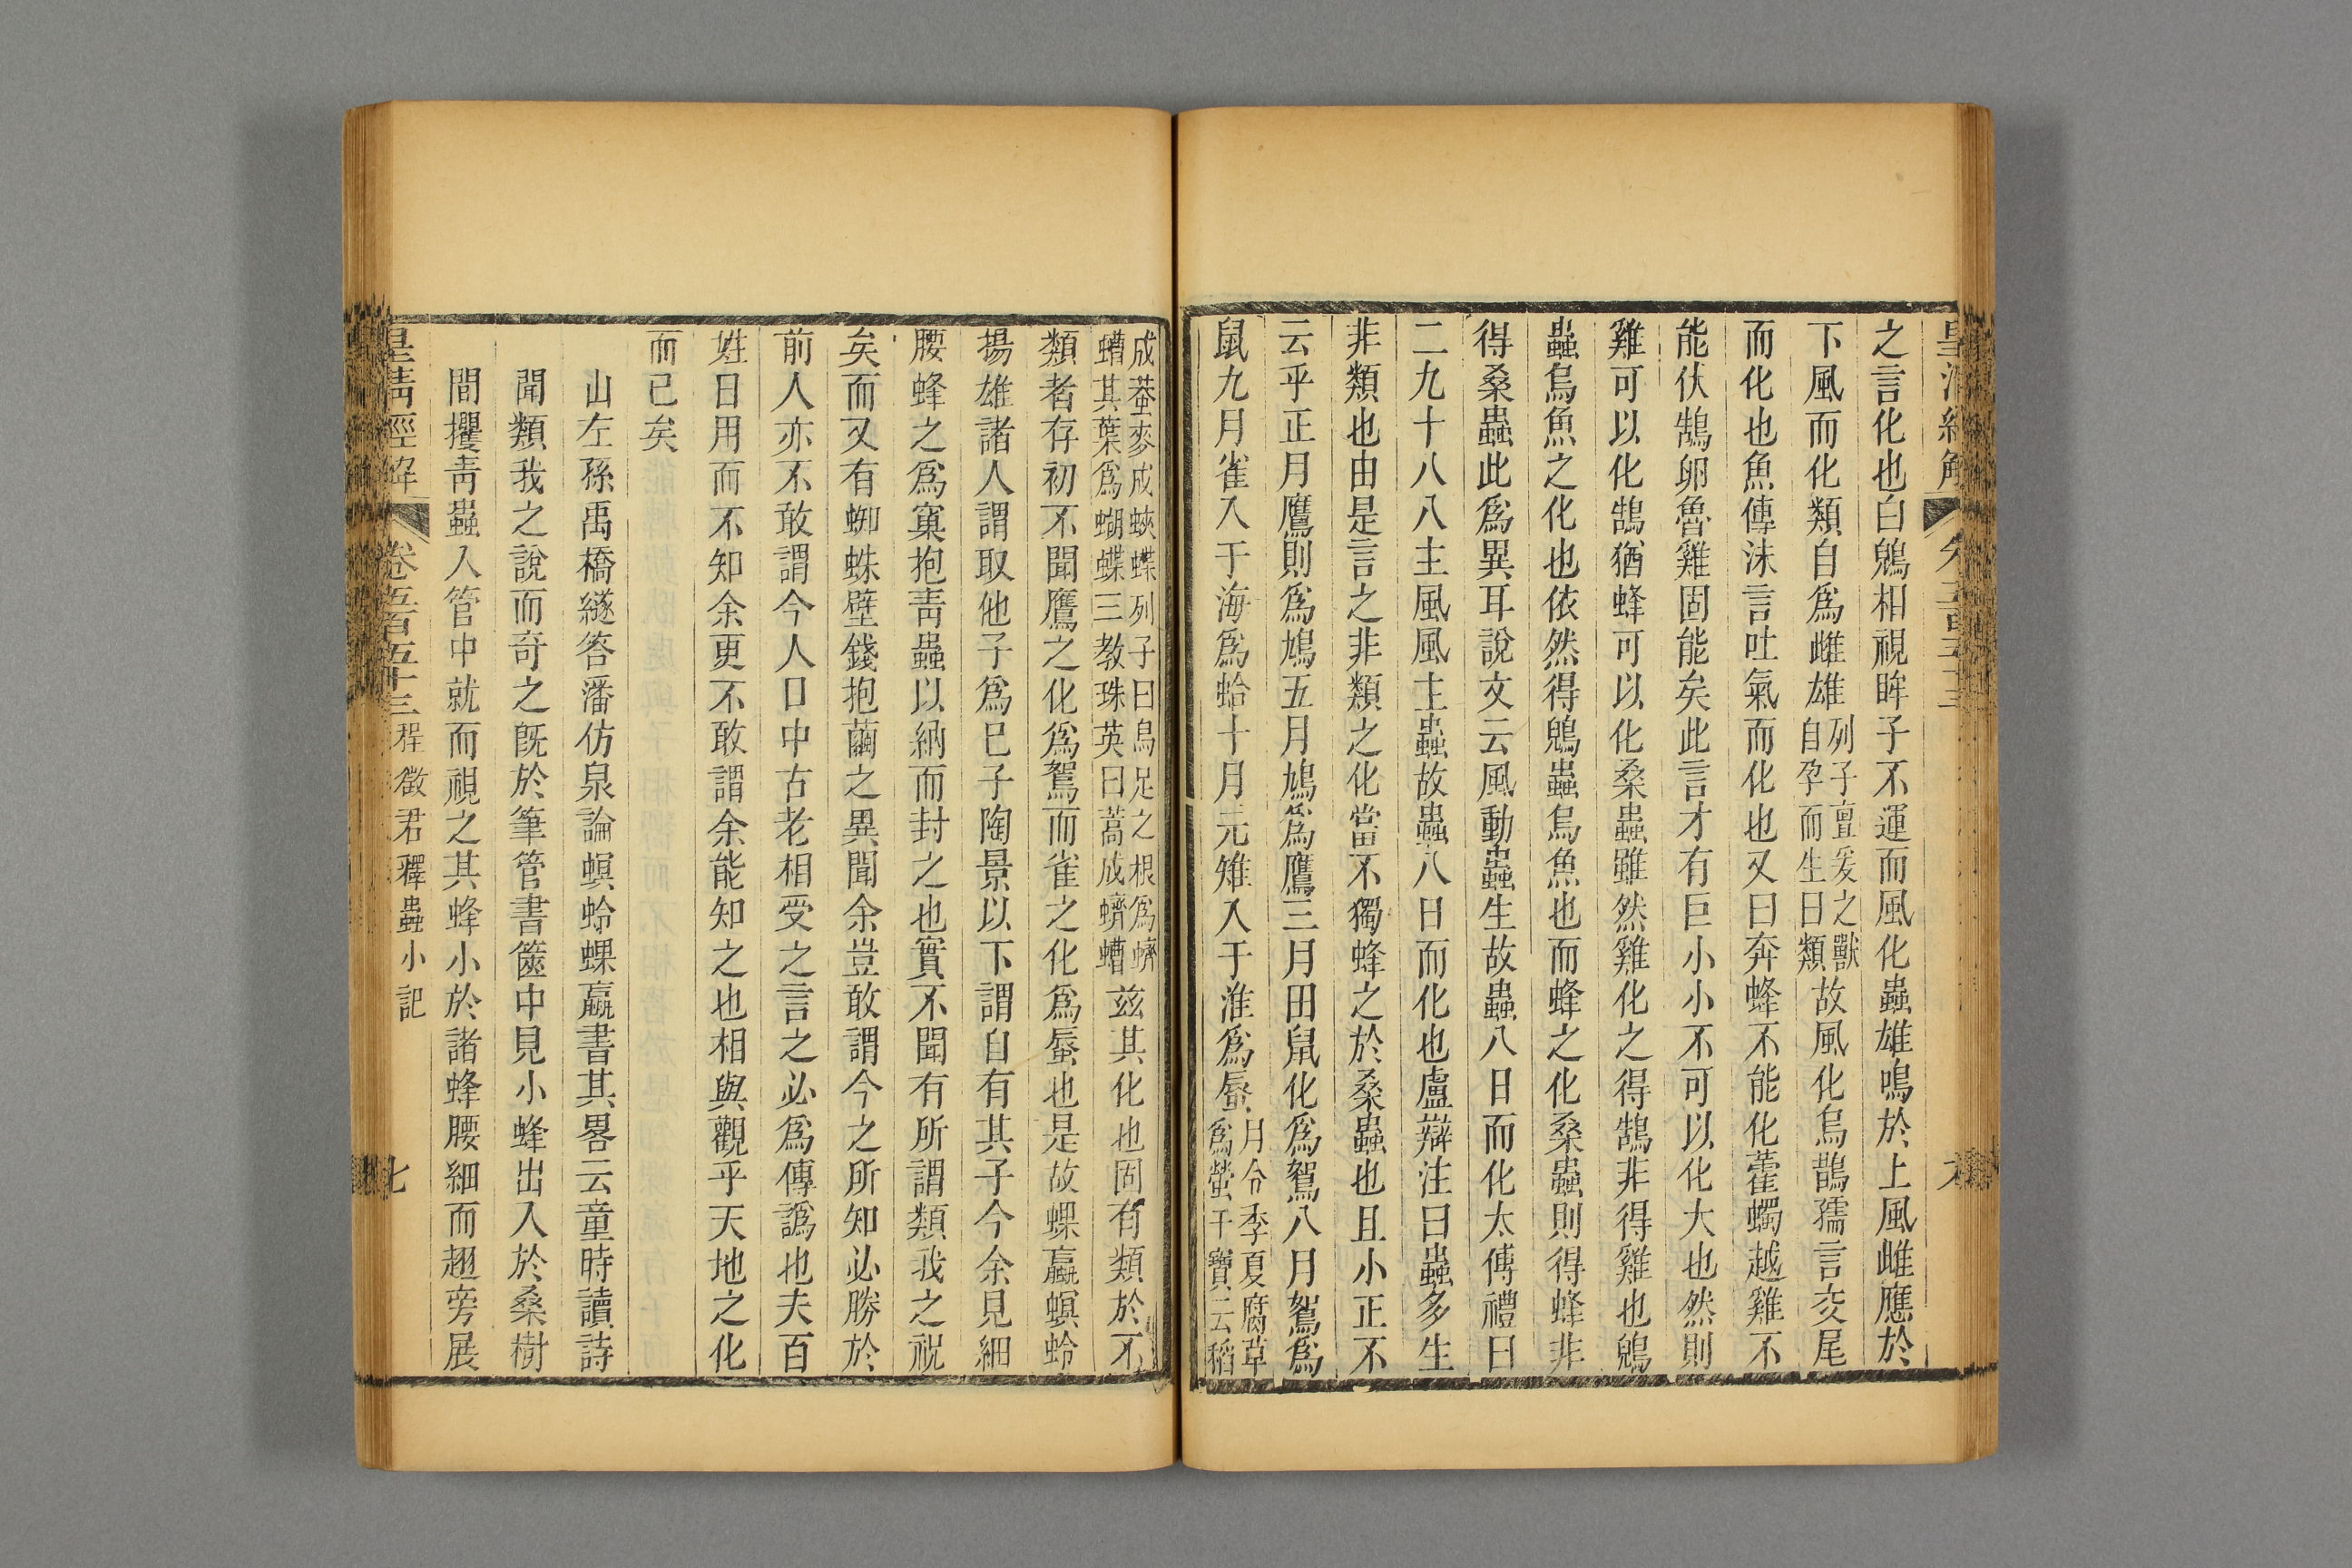 皇清經解
之言化也白鶂相視眸子不運而風化蟲雄鳴於上風雌應於
下風而化類自爲雌雄列子亶爰之獸自孕而生曰類故風化烏鵲孺言交尾
而化也魚傅沫言吐氣而化也又曰奔蜂不能化藿蠋越雞不
能伏鵠卵魯雞固能矣此言才有巨小小不可以化大也然則
雞可以化鵠猶蜂可以化桑蟲雖然雞化之得鵠非得雞也鶂
蟲烏魚之化也依然得鶂蟲烏魚也而蜂之化桑蟲則得蜂非
得桑蟲此爲異耳說文云風動蟲生故蟲八日而化太傅禮曰
二九十八八主風風主蟲故蟲八日而化也盧辯注曰蟲多生
非類也由是言之非類之化當不獨蜂之於桑蟲也且小正不
云乎正月鷹則爲鳩五月鳩爲鷹三月田鼠化爲鴽八月鴽爲
鼠九月雀入于海爲蛤十月元雉入于淮爲蜃月令季夏腐草爲螢干寶云稻
成蛬麥成蛺蝶列子曰烏足之根爲蠐螬其葉爲蝴蝶三教珠英曰蒿成蠐螬兹其化也固有類於不
類者存初不聞鷹之化爲鴽而雀之化爲蜃也是故蜾蠃螟蛉
揚雄諸人謂取他子爲已子陶景以下謂自有其子今余見細
腰蜂之爲窠抱青蟲以納而封之也實不聞有所謂類我之祝
矣而又有蜘蛛壁錢抱繭之異聞余豈敢謂今之所知必勝於
前人亦不敢謂今人口中古老相受之言之必爲傳譌也夫百
姓日用而不知余更不敢謂余能知之也相與觀乎天地之化
而已矣
山左孫禹橋繸答潘仿泉論螟蛉蜾蠃書其畧云童時讀詩
聞類我之說而奇之旣於筆管書篋中見小蜂出入於桑樹
間攫靑蟲入管中就而視之其蜂小於諸蜂腰細而趐旁展
皇清經解 卷五百五十三程徵君釋蟲小記 七